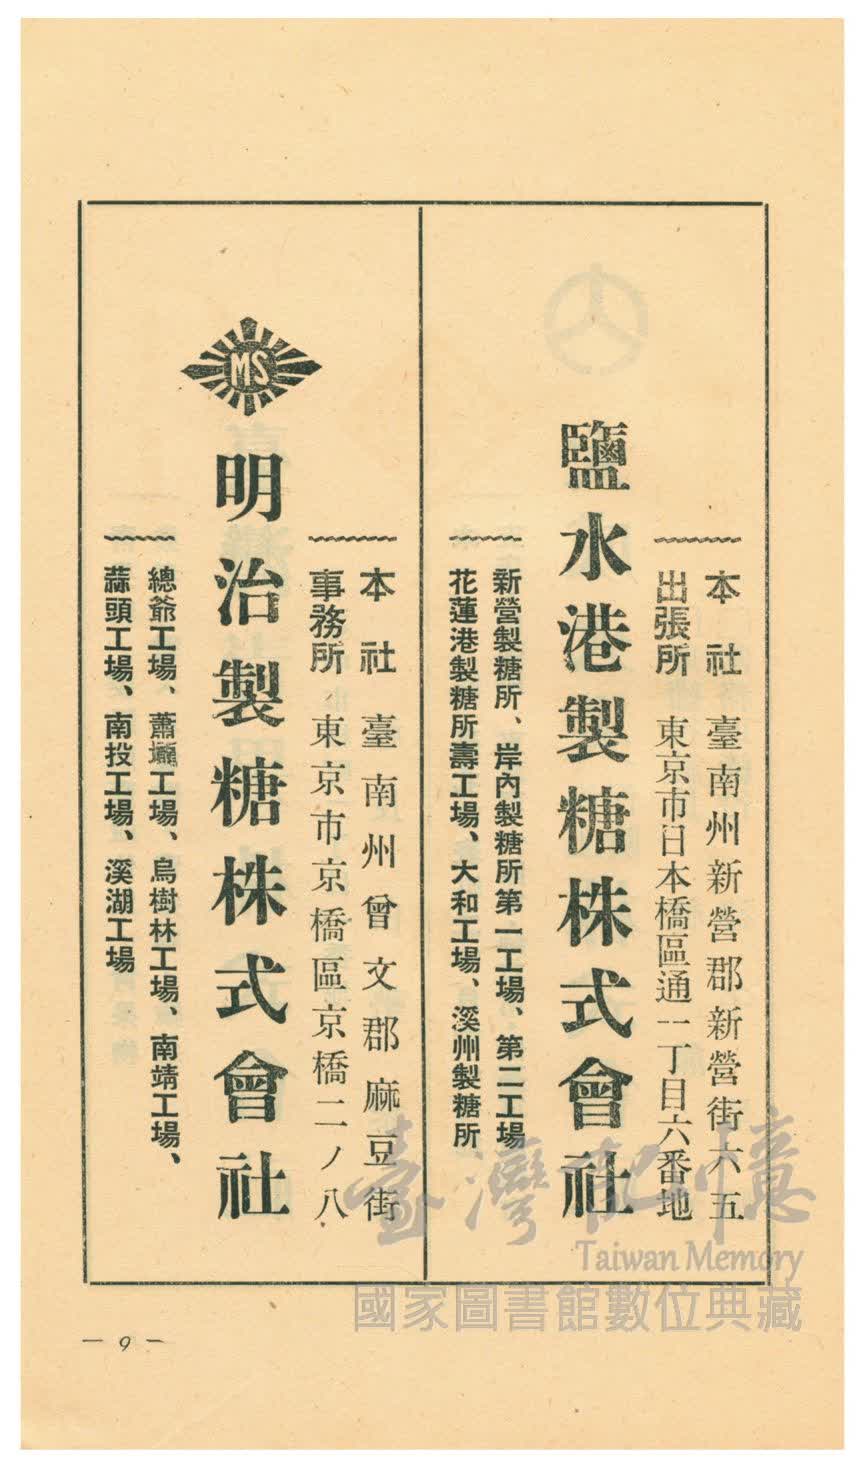 本社 臺南州新營郡新營街六五
出張所 東京市日本橋區通一丁目六番地
鹽水港製糖株式會社
新營製糖所、岸內製糖所第一工場、第二工場
花蓮港製糖所壽工場、大和工場、溪州製糖所
本社 臺南州曾文郡麻豆街
事務所 東京市京橋區京橋二ノ八
MS
明治製糖株式會社
總爺工場、蕭壠工場、烏樹林工場、南靖工場、
蒜頭工場、南投工場、溪湖工場
— 9 —
臺灣記憶
Taiwan Memory
國家圖書館數位典藏